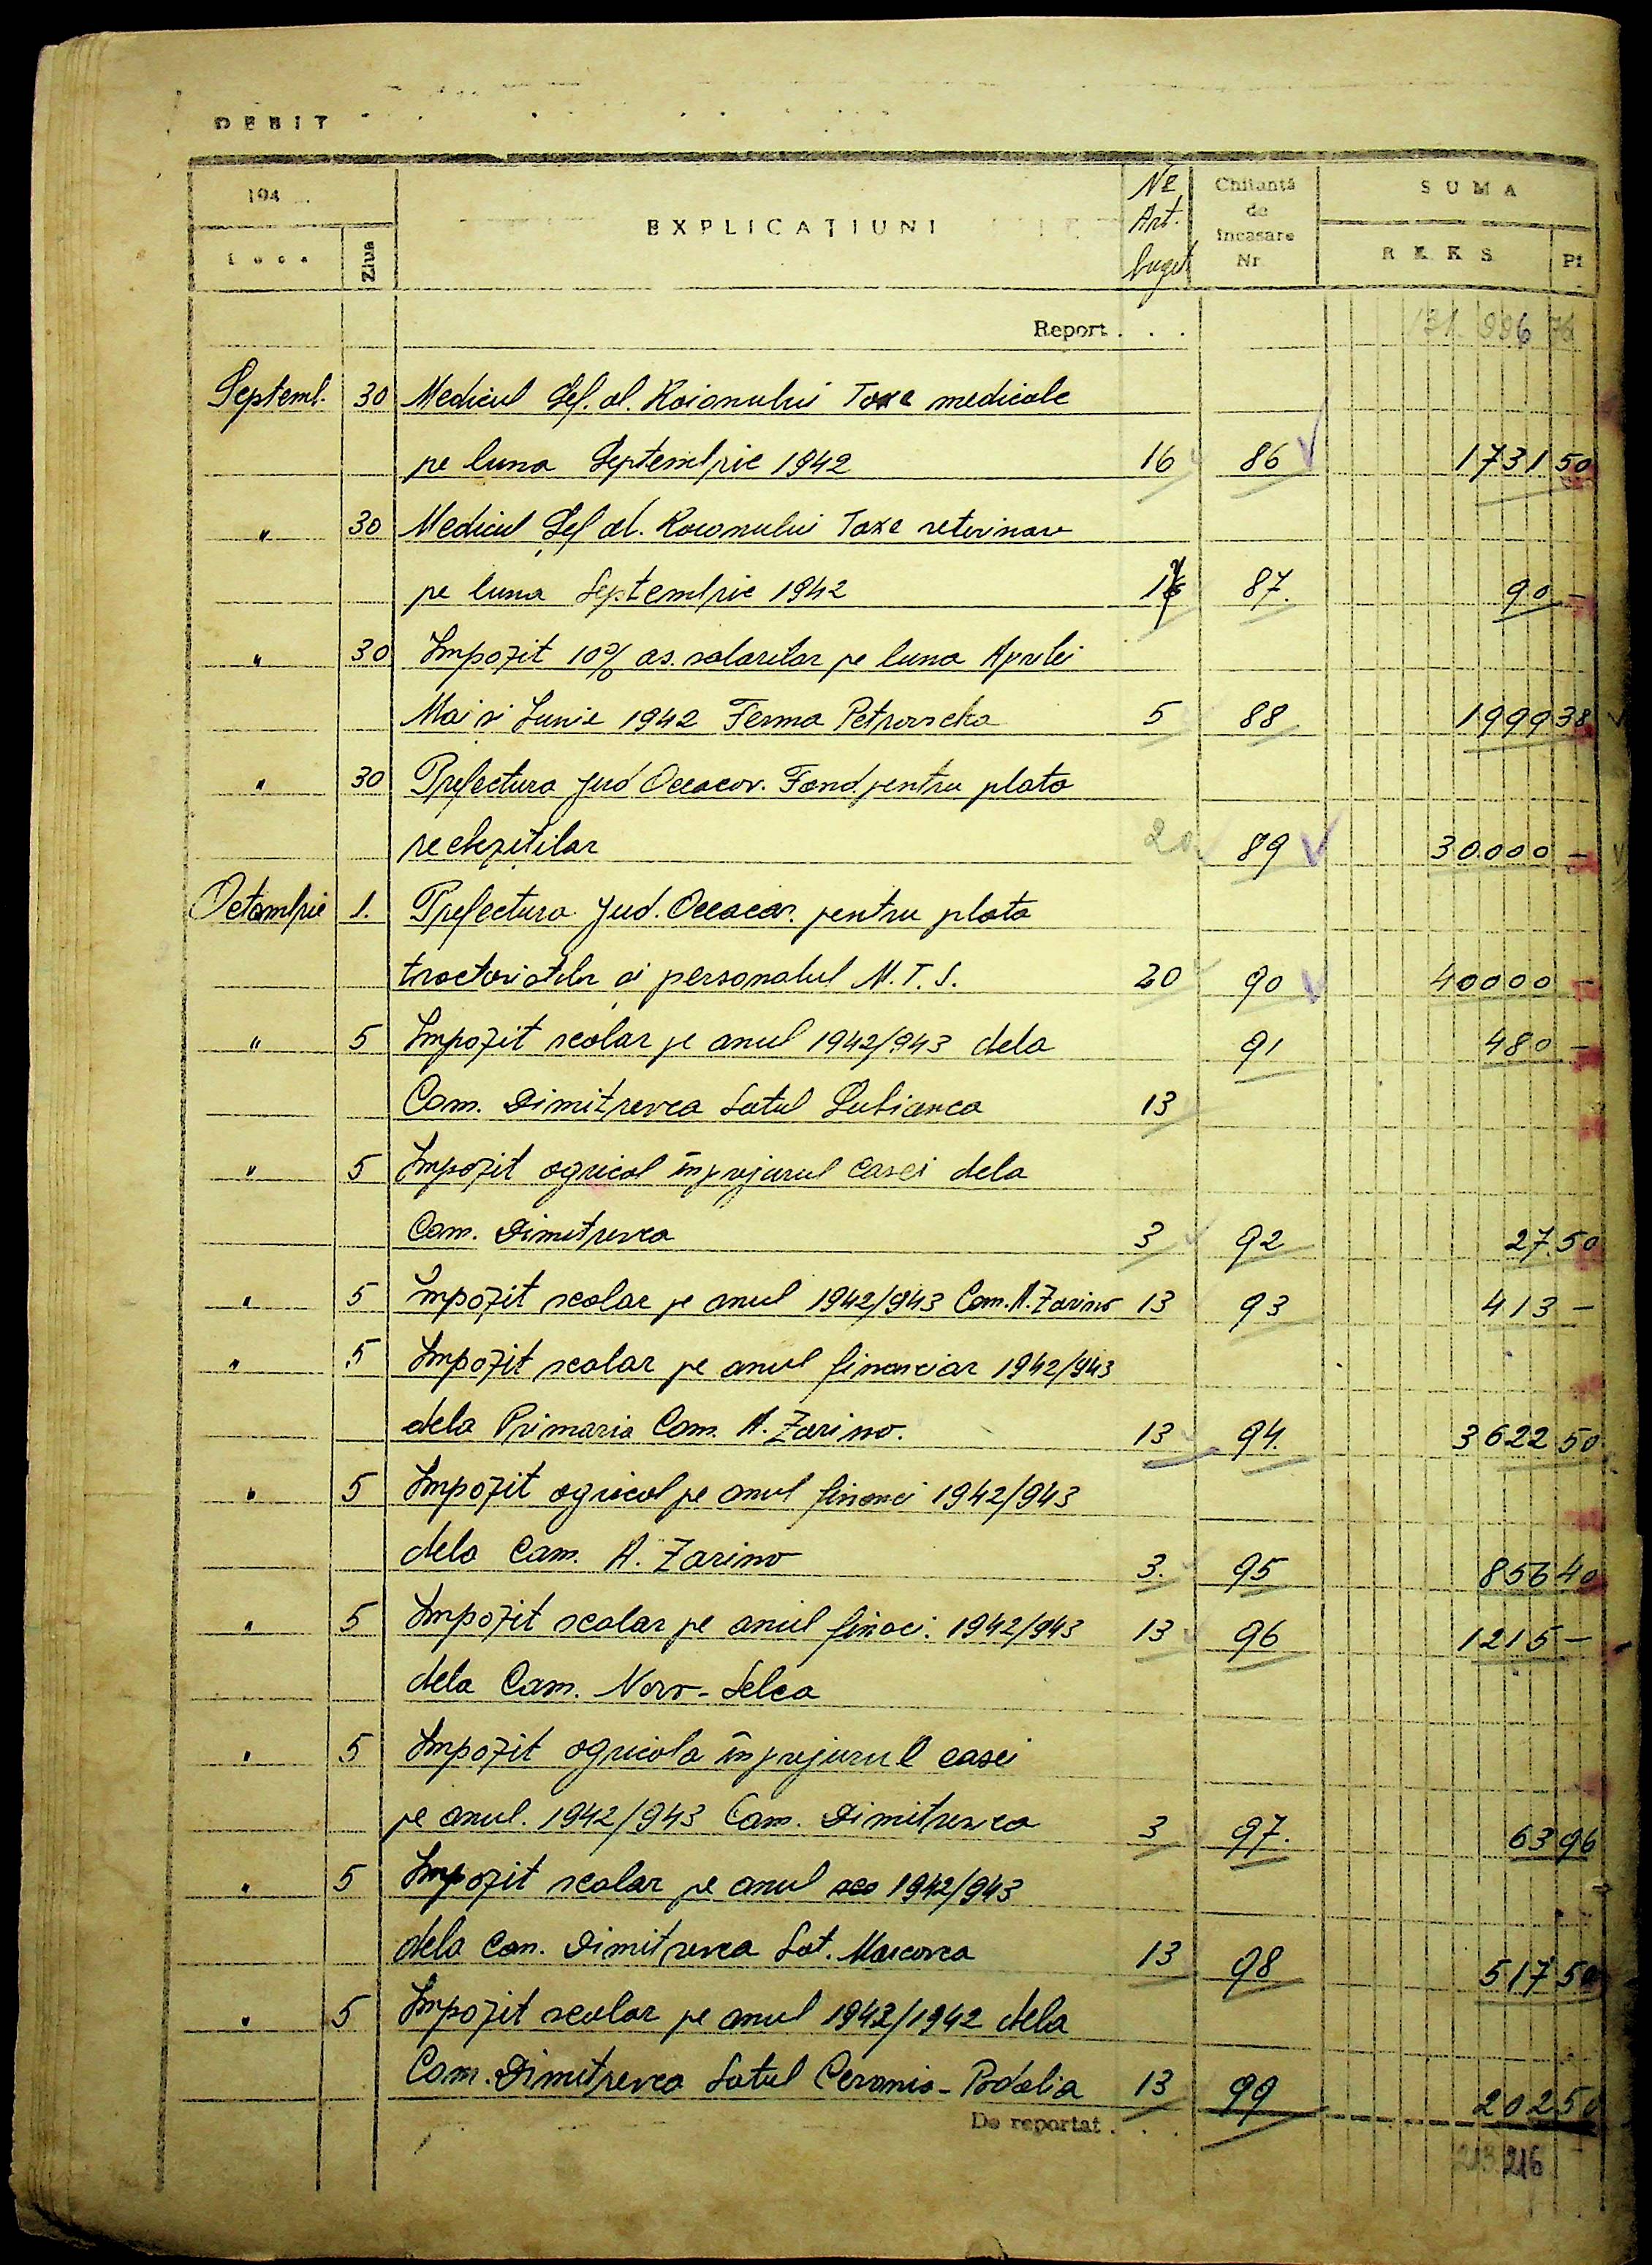 DEBIT
194
Luna
Ziua
EXPLICAȚIUNI
No
Art.
buget
Chitanță
de
încasare
Nr.
SUMA
REKS
Pf
Report . . . 131.996 76
Septemb. 30 Medicul Șef. al. Raionului Taxe medicale
pe luna Septembrie 1942 16 86 1731 50
" 30 Medicul Șef al. Raionului Taxe veterinare
pe luna Septembrie 1942 87. 90 -
" 30 Impozit 10% as. salarilor pe luna Aprilei
Mai si Iunie 1942 Ferma Petrovscha 5 88 1999 38
" 30 Prefectura Jud Oceacov. Fond pentru plata
rechizitilor 20 89 30000 -
Octombrie 1. Prefectura Jud. Oceacov. pentru plata
tractoristilor si personalul M.T.S. 20 90 40000 -
" 5 Impozit scolar pe anul 1942/943 dela 91 480 -
Com. Dimitrevca Satul Lubianca 13
" 5 Impozit agricol înprejurul casei dela
Com. Dimitrevca 3 92 27.50
" 5 Impozit scolar pe anul 1942/943 Com. A. Zarino 13 93 413 -
" 5 Impozit scolar pe anul financiar 1942/943
dela Primaria Com. A. Zarino. 13 94. 3622 50
" 5 Impozit agricol pe anul financi 1942/943
dela Com. A. Zarino 3. 95 856 40
" 5 Impozit scolar pe anul finaci. 1942/943 13 96 1215 -
dela Com. Novo-Selca
" 5 Impozit agricola înprejurul casei
pe anul. 1942/943 Com. Dimitrevca 3 97. 63 96
" 5 Impozit scolar pe anul 1942/943
dela Com. Dimitrevca Sat. Marcovca 13 98 517 50
" 5 Impozit scolar pe anul 1943/1942 dela
Com. Dimitrevca Satul Ceranio-Podalia 13 99 202 50
De reportat . . . 213.216 -